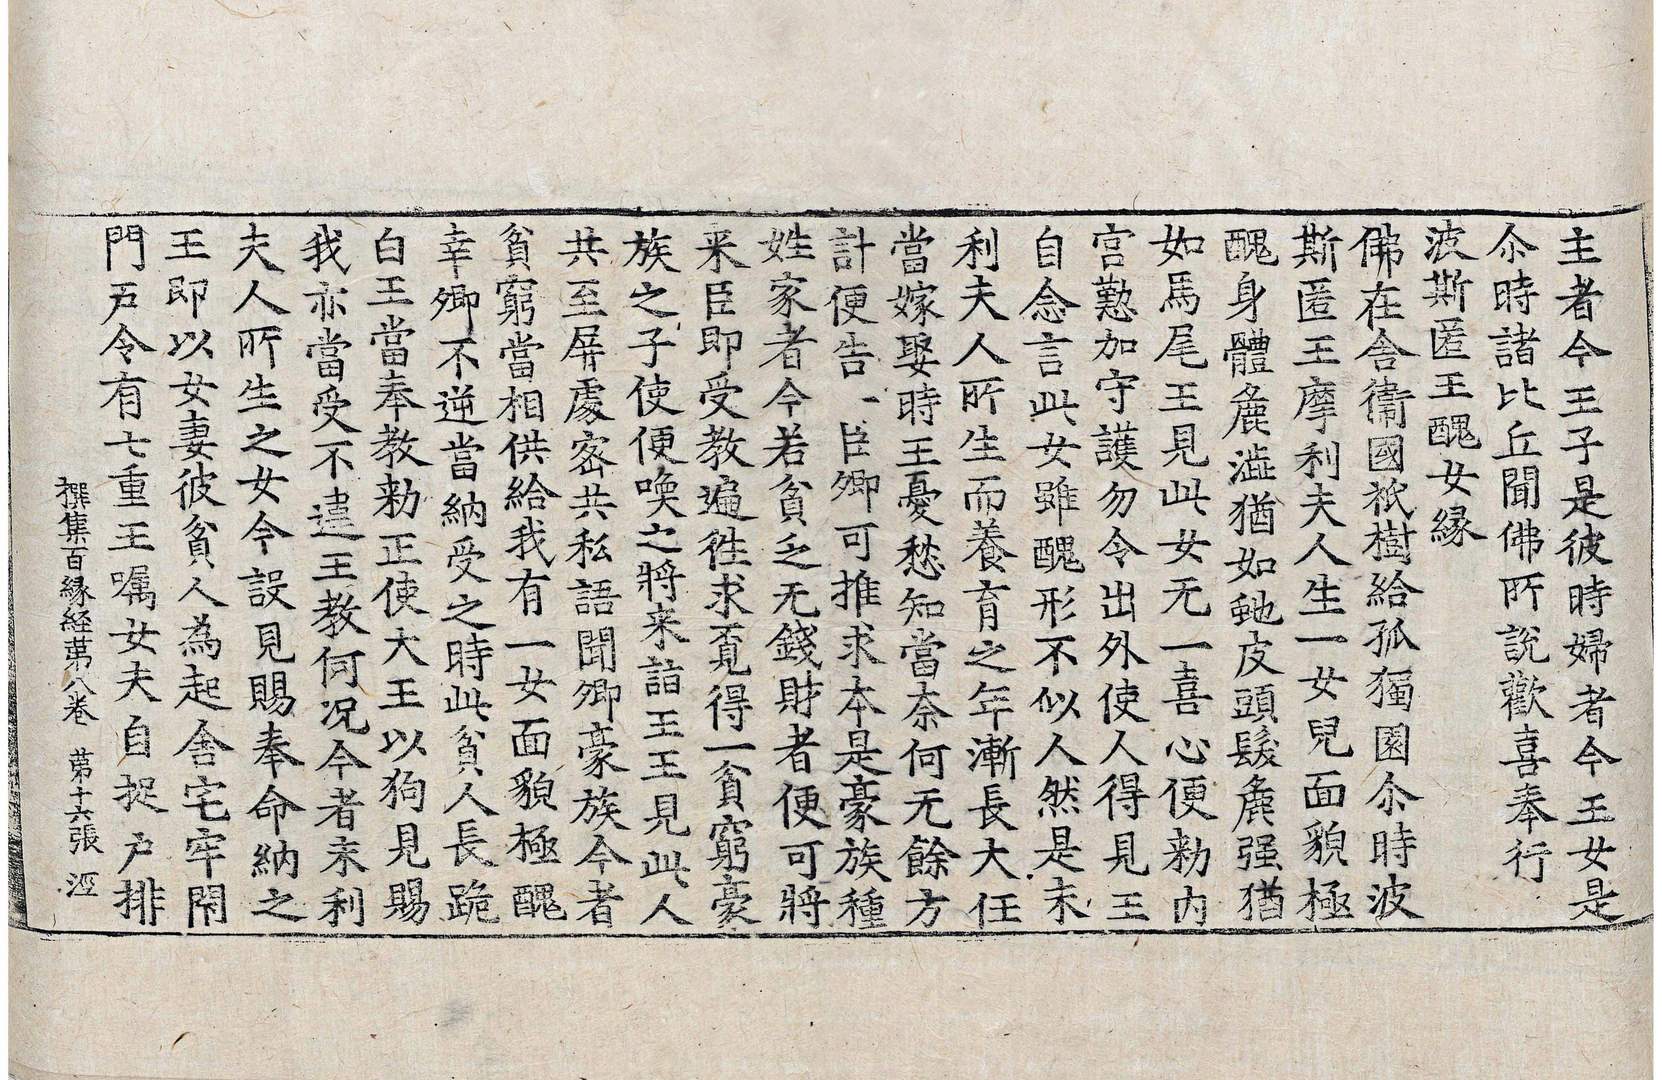 主者今王子是彼時婦者今王女是
尒時諸比丘聞佛所說歡喜奉行
波斯匿王醜女縁
佛在舎衛國祇樹給孤獨園尒時波
斯匿王摩利夫人生一女兒面貌極
醜身體麁澁猶如虵皮頭髮麁强猶
如馬尾王見此女无一喜心便勑内
宫懃加守護勿令出外使人得見王
自念言此女雖醜形不似人然是末
利夫人所生而養育之年漸長大任
當嫁娶時王憂愁知當奈何无餘方
計便告一臣卿可推求本是豪族種
姓家者今若貧乏无錢財者便可將
来臣即受教遍徃求覓得一貧窮豪
族之子使便喚之將来詣王王見此人
共至屏處宻共私語聞卿豪族今者
貧窮當相供給我有一女面貌極醜
幸卿不逆當納受之時此貧人長跪
白王當奉教勑正使大王以狗見賜
我亦當受不違王教何况今者末利
夫人所生之女今設見賜奉命納之
王即以女妻彼貧人為起舎宅牢閇
門戸令有七重王嘱女夫自捉戸排
撰集百縁経苐八卷 苐十六張 涇